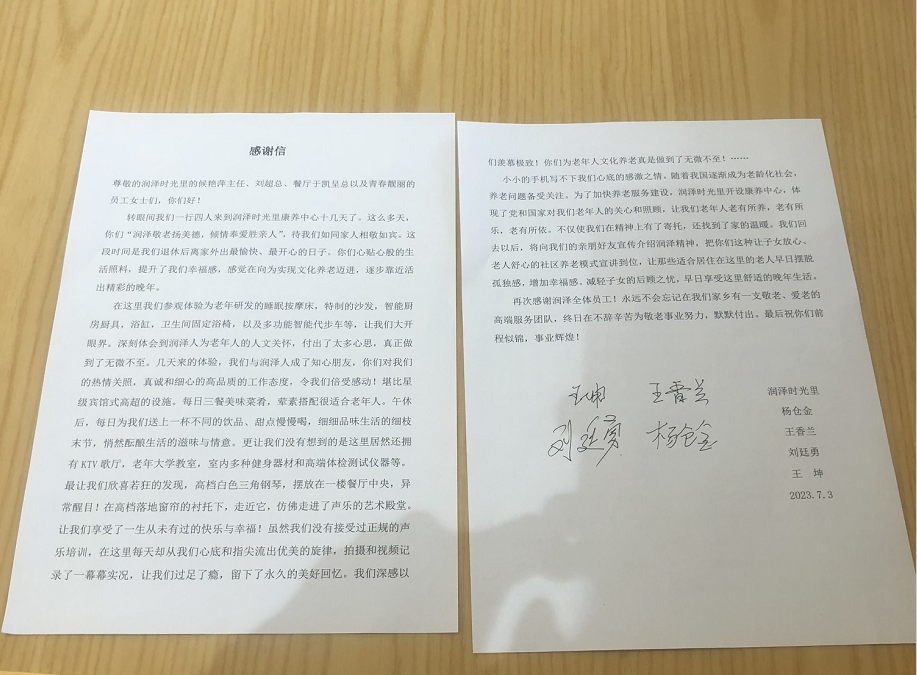 感谢信
尊敬的润泽时光里的候艳萍主任、刘超总、餐厅于凯呈总以及青春靓丽的
员工女士们，你们好！
转眼间我们一行四人来到润泽时光里康养中心十几天了。这么多天，
你们“润泽敬老扬美德，倾情奉爱胜亲人”，待我们如同家人相敬如宾。这
段时间是我们退休后离家外出最愉快、最开心的日子。你们心贴心般的生
活照料，提升了我们幸福感，感觉在向为实现文化养老迈进，逐步靠近活
出精彩的晚年。
在这里我们参观体验为老年研发的睡眠按摩床，特制的沙发，智能厨
房厨具，浴缸，卫生间固定浴椅，以及多功能智能代步车等，让我们大开
眼界。深刻体会到润泽人为老年人的人文关怀，付出了太多心思，真正做
到了无微不至。几天来的体验，我们与润泽人成了知心朋友，你们对我们
的热情关照，真诚和细心的高品质的工作态度，令我们倍受感动！堪比星
级宾馆式高超的设施。每日三餐美味菜肴，荤素搭配很适合老年人。午休
后，每日为我们送上一杯不同的饮品、甜点慢慢喝，细细品味生活的细枝
末节，悄然酝酿生活的滋味与情意。更让我们没有想到的是这里居然还拥
有 KTV 歌厅，老年大学教室，室内多种健身器材和高端体检测试仪器等。
最让我们欣喜若狂的发现，高档白色三角钢琴，摆放在一楼餐厅中央，异
常醒目！在高档落地窗帘的衬托下，走近它，仿佛走进了声乐的艺术殿堂。
让我们享受了一生从未有过的快乐与幸福！虽然我们没有接受过正规的声
乐培训，在这里每天却从我们心底和指尖流出优美的旋律，拍摄和视频记
录了一幕幕实况，让我们过足了瘾，留下了永久的美好回忆。我们深感以
们羡慕极致！你们为老年人文化养老真是做到了无微不至！……
小小的手机写不下我们心底的感激之情。随着我国逐渐成为老龄化社会，
养老问题备受关注。为了加快养老服务建设，润泽时光里开设康养中心，体
现了党和国家对我们老年人的关心和照顾，让我们老年人老有所养，老有所
乐，老有所依。不仅使我们在精神上有了寄托，还找到了家的温暖。我们回
去以后，将向我们的亲朋好友宣传介绍润泽精神，把你们这种让子女放心、
老人舒心的社区养老模式宣讲到位，让那些适合居住在这里的老人早日摆脱
孤独感，增加幸福感。减轻子女的后顾之忧，早日享受这里舒适的晚年生活。
再次感谢润泽全体员工！永远不会忘记在我们家乡有一支敬老、爱老的
高端服务团队，终日在不辞辛苦为敬老事业努力，默默付出。最后祝你们前
程似锦，事业辉煌！
王坤 王香兰
刘廷勇 杨仓金
润泽时光里
杨仓金
王香兰
刘廷勇
王 坤
2023.7.3